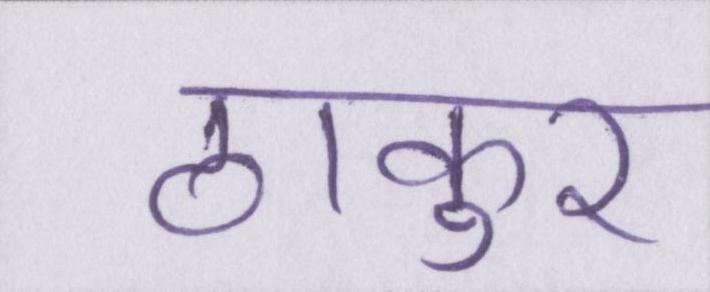 ठाकुर